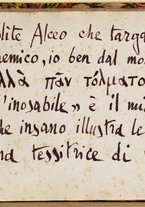 olite Alceo che targa
nemico, io ben dal mo
λλὰ πᾶν τόλματο
l'inosabile" è il mi
che insano illustra le
na tessitrice di